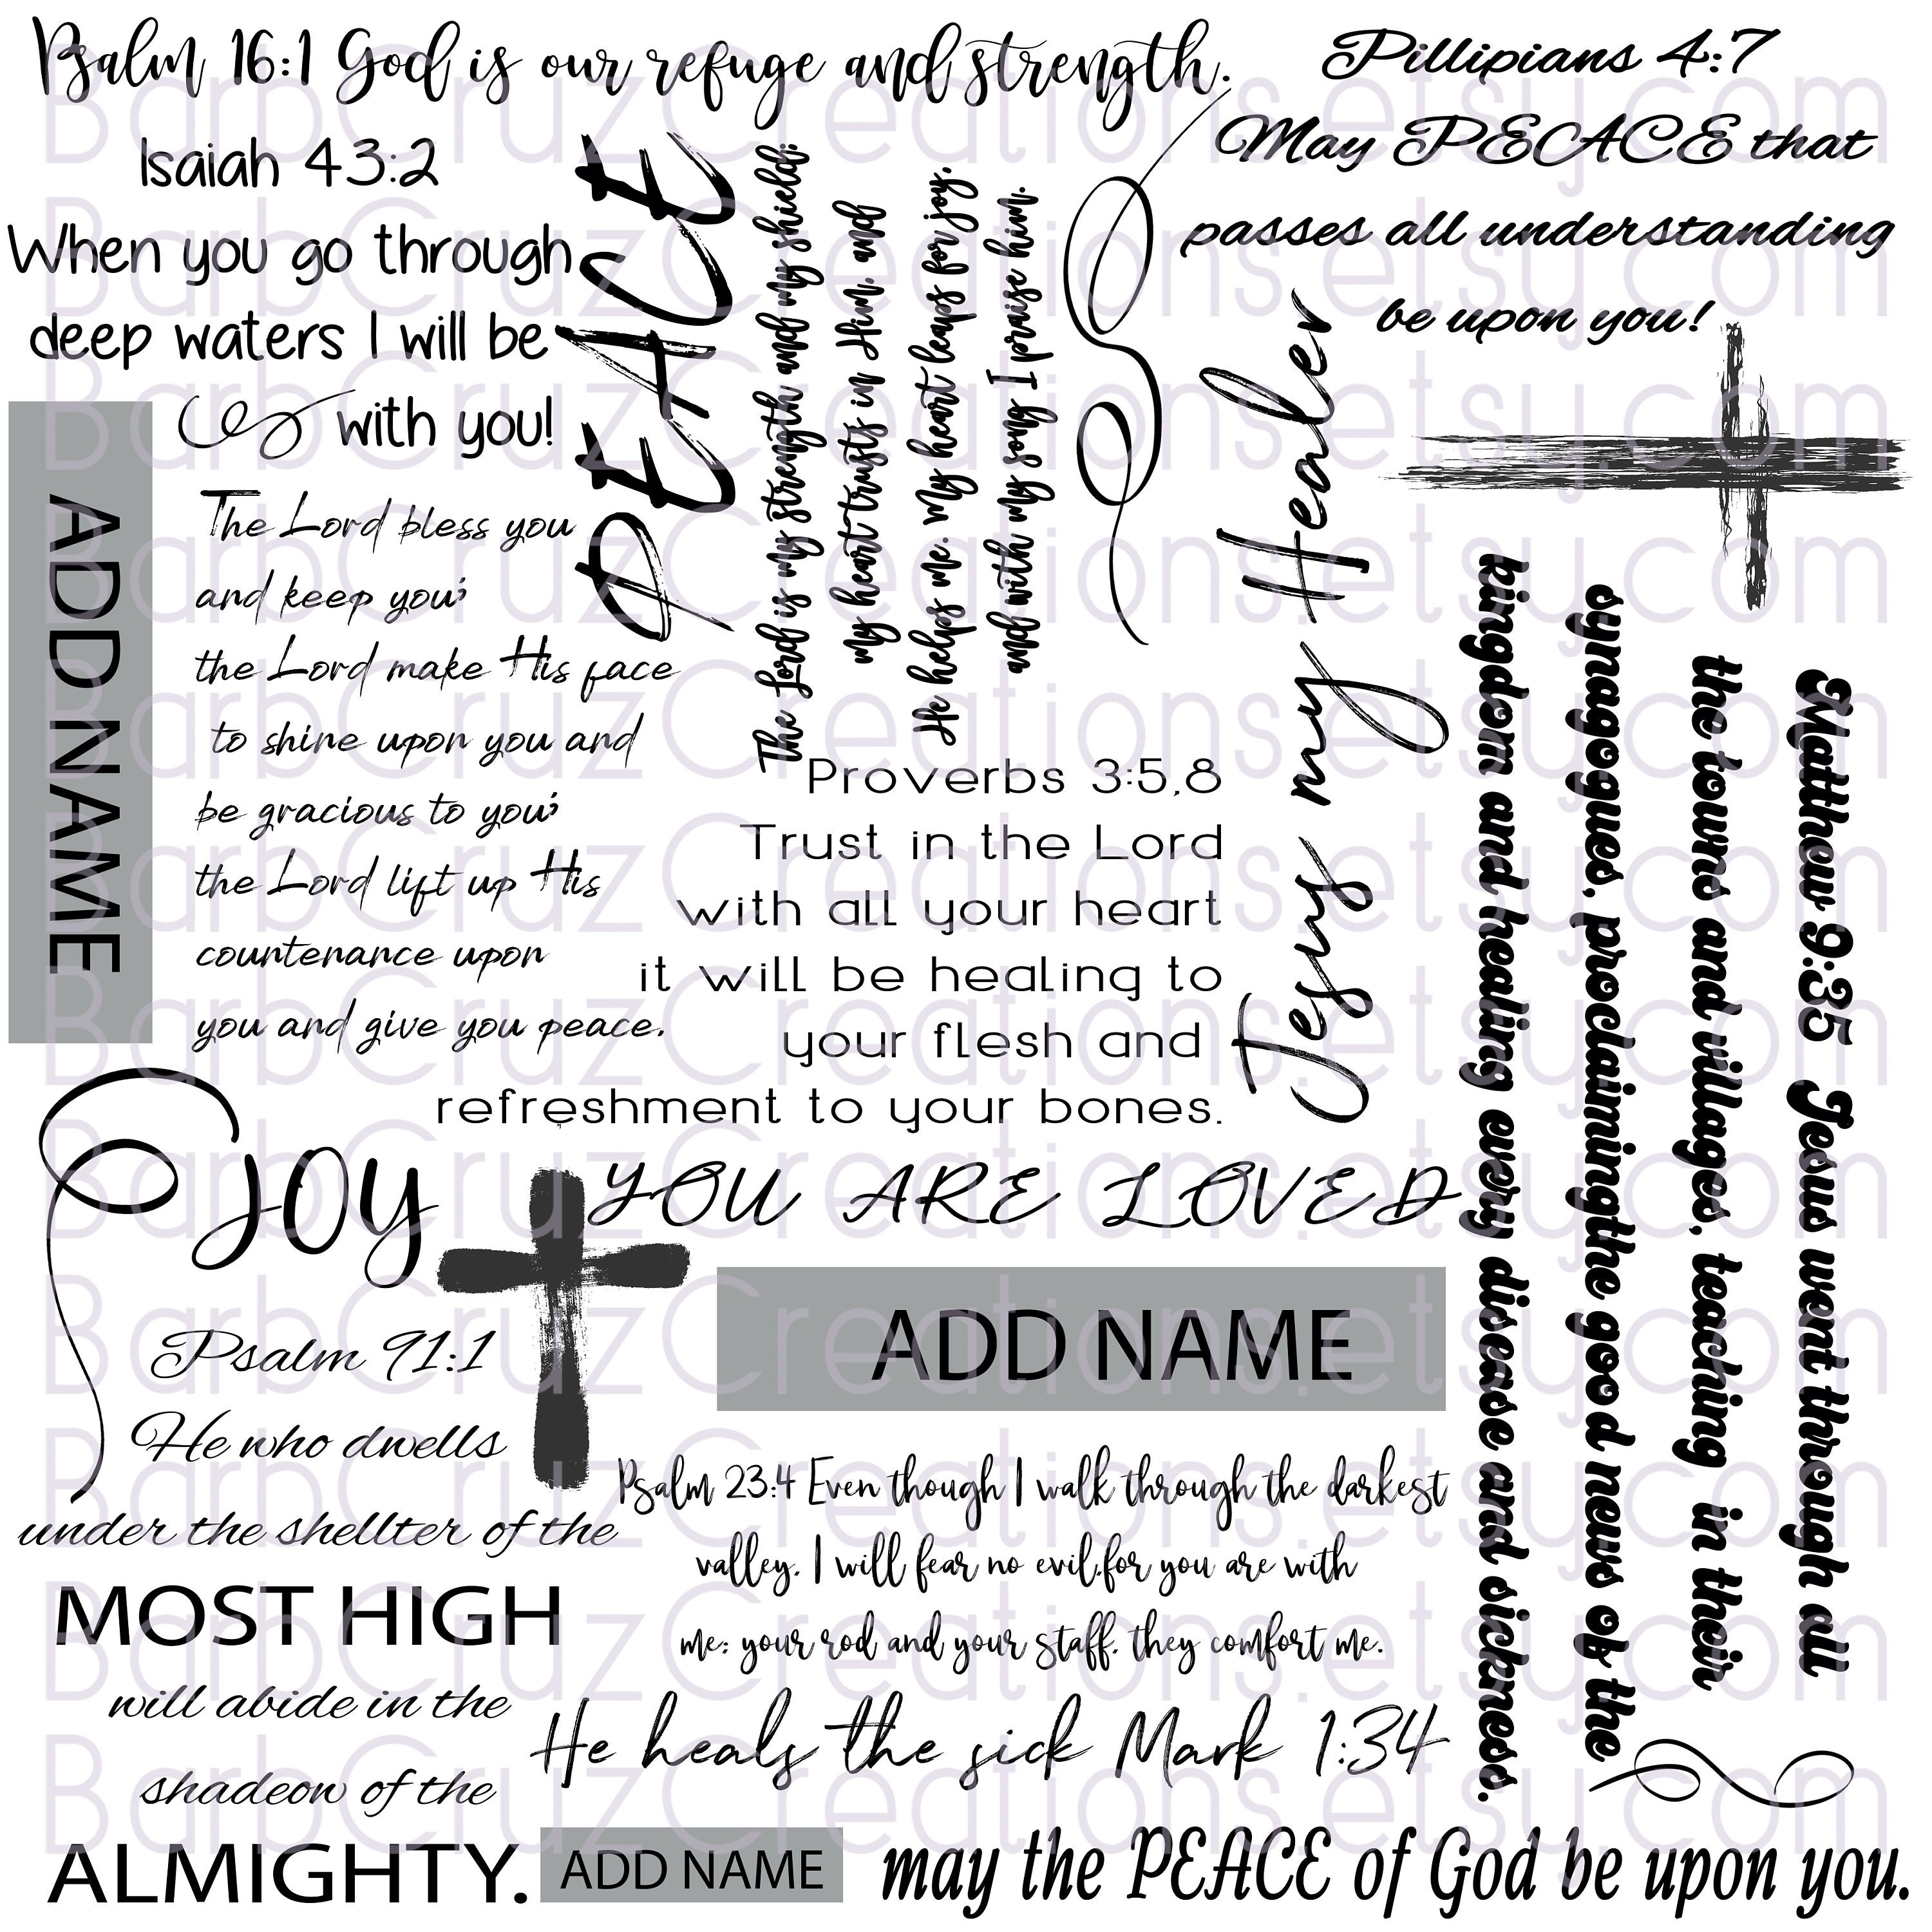 Psalm 16:1 God is our refuge and strength.
Isaiah 43:2
When you go through
deep waters I will be
with you!
PEACE
The Lord is my strength and my shield;
my heart trusts in Him, and
He helps me. My heart leaps for joy,
and with my song I praise him.
Pillipians 4:7
May PEACE that
passes all understanding
be upon you!
ADD NAME
The Lord bless you
and keep you;
the Lord make His face
to shine upon you and
be gracious to you;
the Lord lift up His
countenance upon
you and give you peace.
Proverbs 3:5,8
Trust in the Lord
with all your heart
it will be healing to
your flesh and
refreshment to your bones.
Jesus my Healer
Matthew 9:35 Jesus went through all
the towns and villages, teaching in their
synagogues, proclaimingthe good news of the
kingdom and healing every disease and sickness.
JOY
YOU ARE LOVED
ADD NAME
Psalm 91:1
He who dwells
under the shellter of the
MOST HIGH
will abide in the
shadeow of the
ALMIGHTY.
Psalm 23:4 Even though I walk through the darkest
valley, I will fear no evil,for you are with
me; your rod and your staff, they comfort me.
He heals the sick Mark 1:34
ADD NAME
may the PEACE of God be upon you.
BarbCruzCreations.etsy.com
BarbCruzCreations.etsy.com
BarbCruzCreations.etsy.com
BarbCruzCreations.etsy.com
BarbCruzCreations.etsy.com
BarbCruzCreations.etsy.com
BarbCruzCreations.etsy.com
BarbCruzCreations.etsy.com
BarbCruzCreations.etsy.com
BarbCruzCreations.etsy.com
BarbCruzCreations.etsy.com
BarbCruzCreations.etsy.com